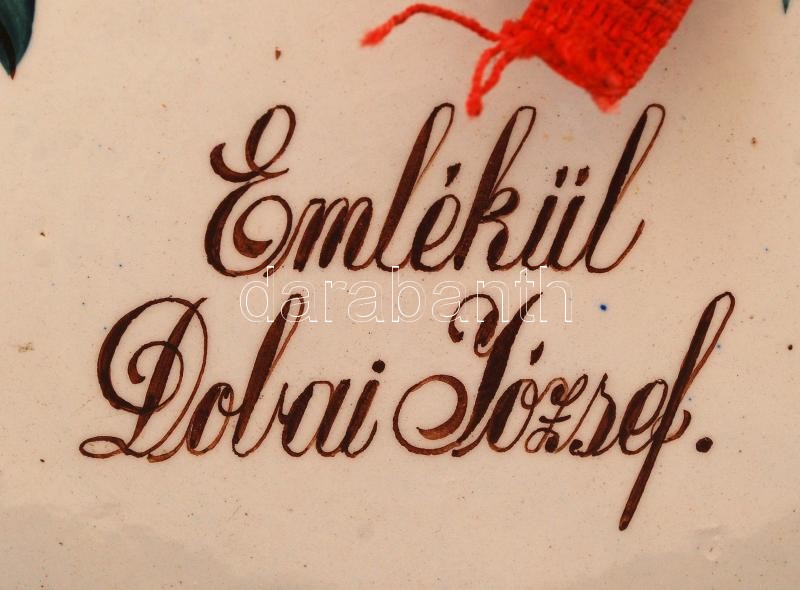 Emlékül
darabanth
Dobai József.